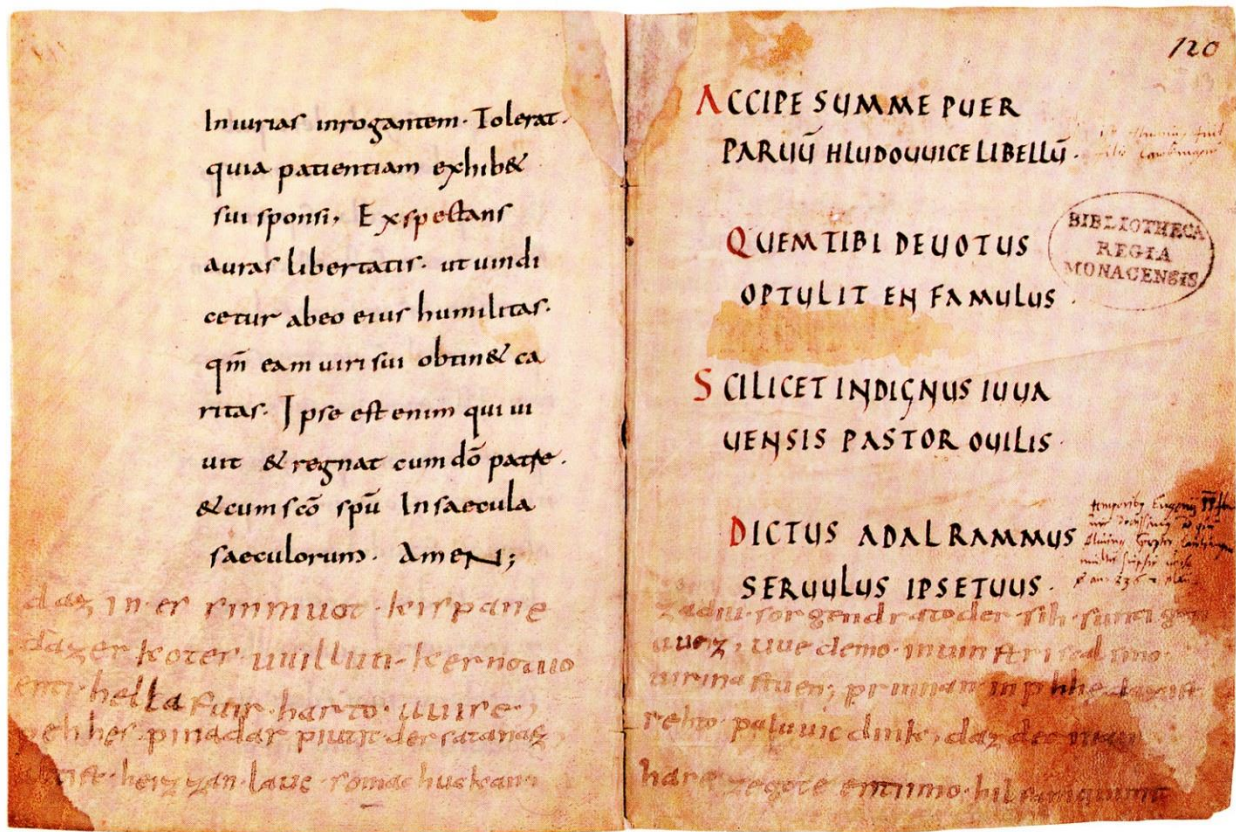 In iurias inrogantem· Tolerat·
quia patientiam exhib&
sui sponsi· Exspectans
auras libertatis· ut uindi
cetur abeo eius humilitas·
qm̄ eam uiri sui obtin& ca
ritas· Ipse est enim qui ui
uit & regnat cum dō patre·
& cum scō spū In saecula
saeculorum· AmeN;
daz in er sinan muot· kispane
daz er kotes uuillun· kerno tuo
enti hella fuir· harto uuise·
pehhes pina dar piutit der satanaz
heizzan lauc·
120
ACCIPE SUMME PUER
PARUŪ HLUDOUUICE LIBELLŪ·
BIBLIOTHECA
REGIA
MONACENSIS
QUEM TIBI DEUOTUS
OPTULIT EN FAMULUS·
SCILICET INDIGNUS IUUA
UENSIS PASTOR OUILIS·
DICTUS ADALRAMMUS
SERUULUS IPSE TUUS·
za diu· sorgen drato der sih suntigen
uueiz; uue demo· in uinstri scal sino
uirina stuen; prinnan in pehhe daz ist
rehto paluuic dink; daz der man
haret ze gote enti imo hilfa ni quimit